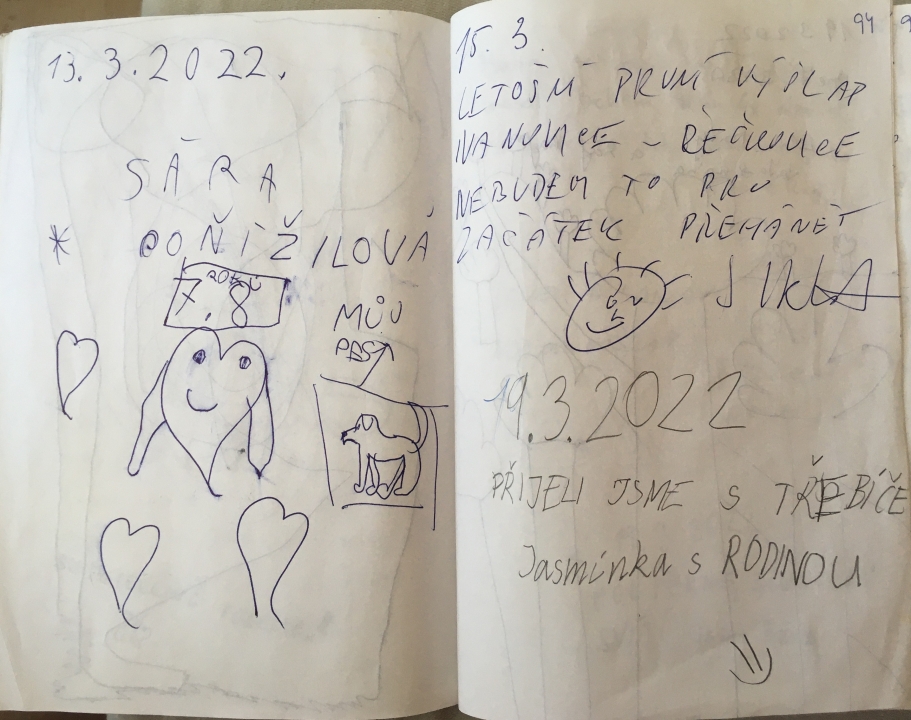 13. 3. 2022.
SÁRA
* DOŇIŽILOVÁ
ROKŮ
7,8
MŮJ
PES
94
15. 3.
LETOŠNÍ PRVNÍ VÝŠLAP
IVANOVICE - ŘEČKOVICE
NEBUDEM TO PRO
ZAČÁTEK PŘEHÁNĚT
JIRKA
19.3.2022
PŘIJELI JSME S TŘEBÍČE
Jasmínka s RODINOU